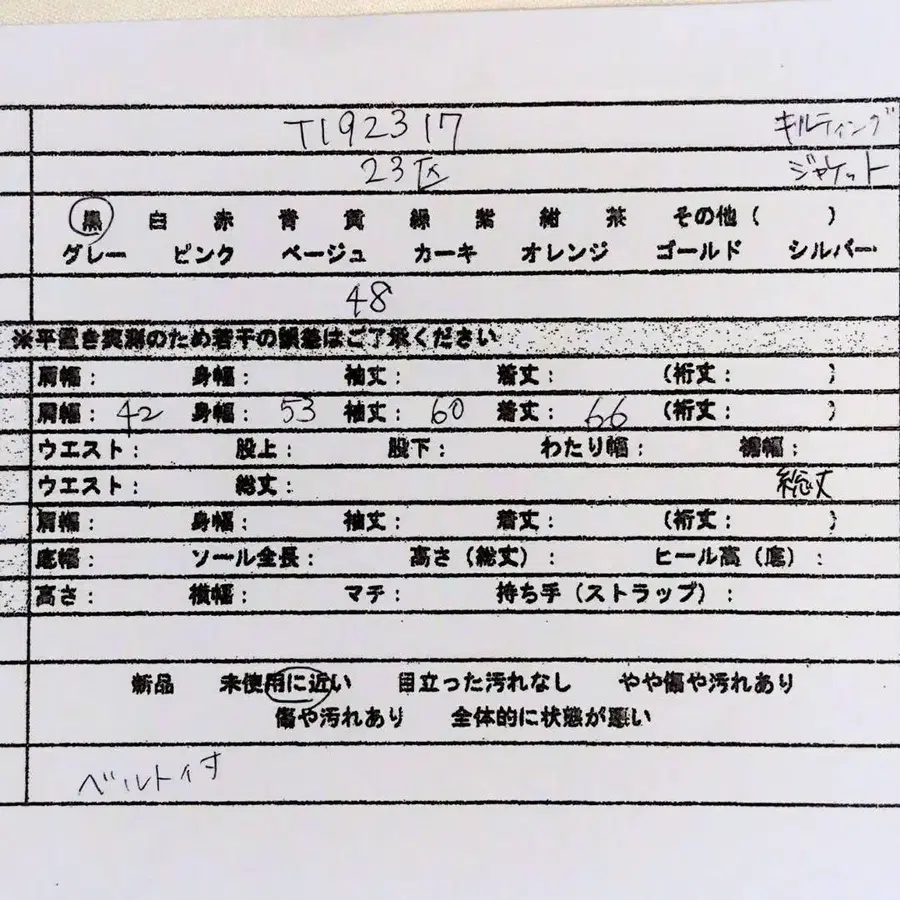 T192317 キルティング
23区 ジャケット
黒 白 赤 青 黄 緑 紫 紺 茶 その他 ( )
グレー ピンク ベージュ カーキ オレンジ ゴールド シルバー
48
※平置き実測のため若干の誤差はご了承ください
肩幅： 身幅： 袖丈： 着丈： (裄丈： )
肩幅：42 身幅：53 袖丈：60 着丈：66 (裄丈： )
ウエスト： 股上： 股下： わたり幅： 裾幅：
ウエスト： 総丈： 総丈
肩幅： 身幅： 袖丈： 着丈： (裄丈： )
底幅： ソール全長： 高さ（総丈）： ヒール高（底）：
高さ： 横幅： マチ： 持ち手（ストラップ）：
新品 未使用に近い 目立った汚れなし やや傷や汚れあり
傷や汚れあり 全体的に状態が悪い
ベルト付